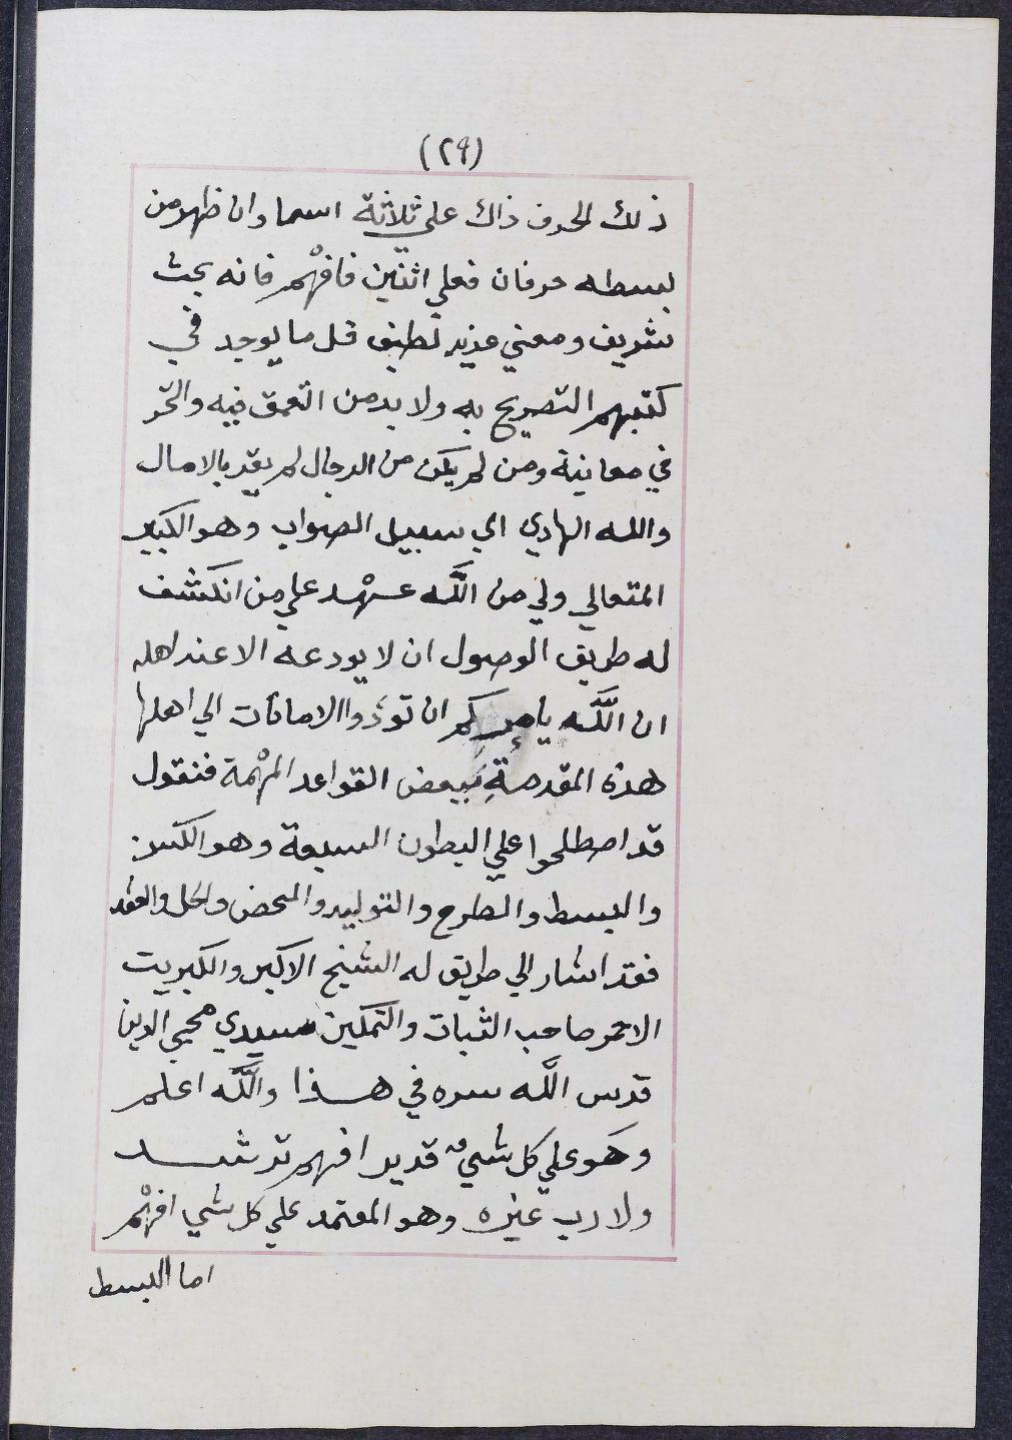 (٢٩)
ذلك الحرف ذاك على ثلاثة اسما وان ظهر من
بسطه حرفان فعلي اثنين فافهم فانه بحث
شريف ومعني عزيز لطيف قل ما يوجد في
كتبهم التصريح به ولا بد من التعمق فيه والتحر
في معانيه ومن لم يكن من الرجال لم يقر بالامال
والله الهادي الي سبيل الصواب وهو الكبير
المتعالي ولي من الله عهد علي من انكشف
له طريق الوصول ان لا يودعه الا عند اهله
ان الله يامركم ان تؤدوا الامانات الي اهلها
هذه المقدمة ببعض القواعد المهمة فنقول
قد اصطلحوا علي البطون السبعة وهو الكسر
والبسط والطرح والتوليد والمحض والحل والعقد
فقد اشار الي طريق له الشيخ الاكبر والكبريت
الاحمر صاحب الثبات والتمكين سيدي محيي الدين
قدس الله سره في هذا والله اعلم
وهو علي كل شيء قدير افهم ترشد
ولا رب غيره وهو المعتمد علي كل شي افهم
اما البسط